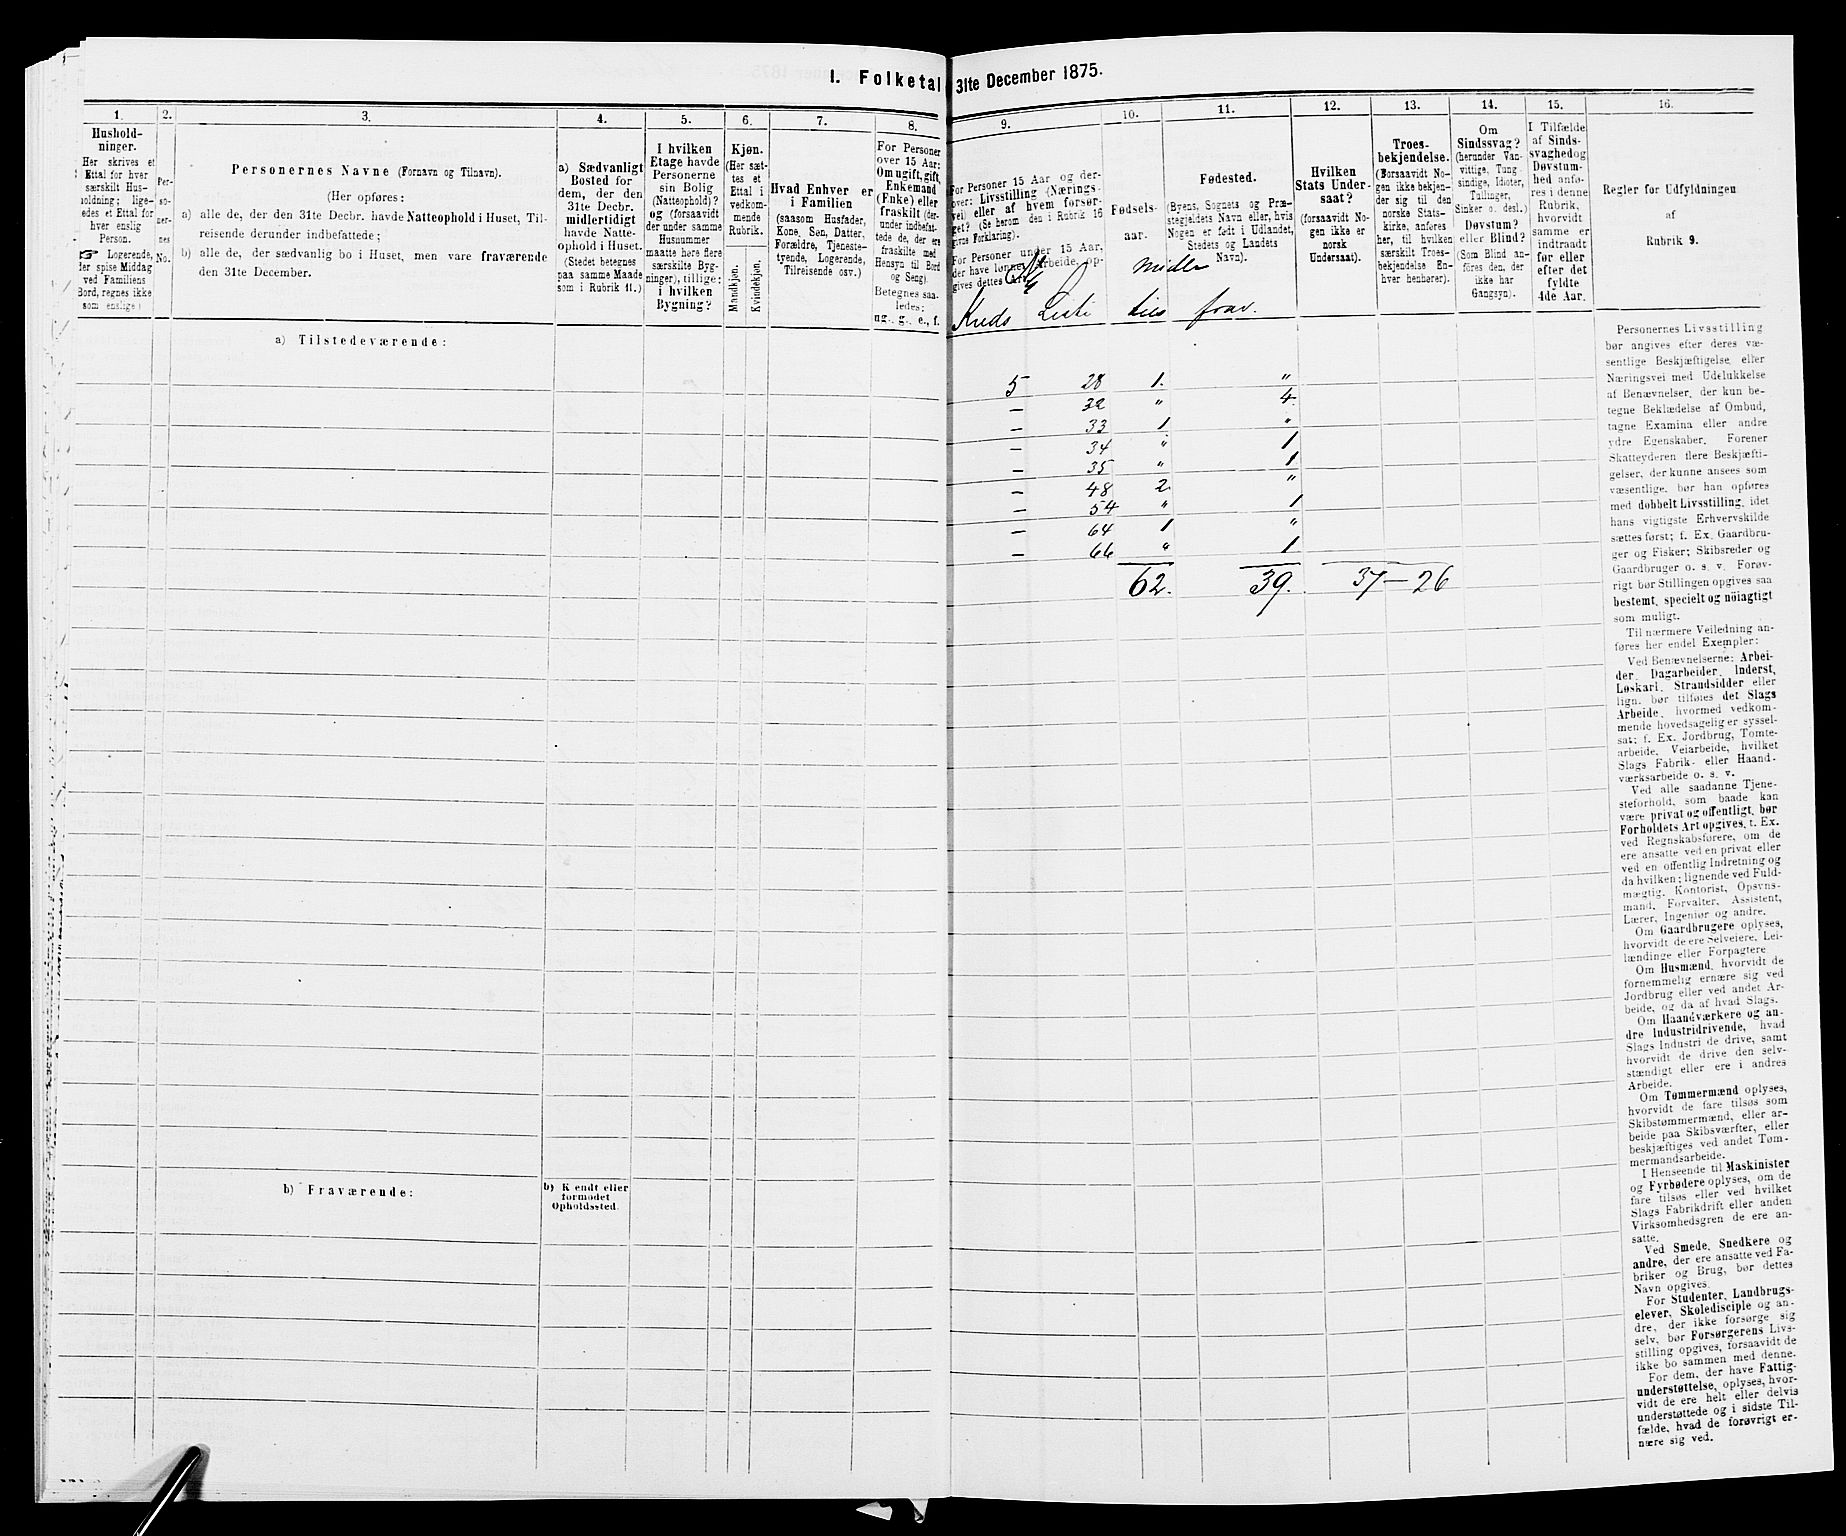 I. Folketal
31te December 1875.
1.
2.
3.
4.
5.
6.
7.
8.
9.
10.
11.
12.
13.
14.
15.
16.
Hushold-
ninger.
Her skrives et
Ettal for hver
særskilt Hus-
holdning; lige-
ledes et Ettal for
hver enslig
Person.
☞ Logerende,
der spise Middag
ved Familiens
Bord, regnes ikke
som enslige.
Per-
so-
ner-
nes
No.
Personernes Navne (Fornavn og Tilnavn).
(Her opføres:
a) alle de, der den 31te Decbr. havde Natteophold i Huset, Til-
reisende derunder indbefattede;
b) alle de, der sædvanlig bo i Huset, men vare fraværende
den 31te December.
a) Sædvanligt
Bosted for
dem, der den
31te Decbr.
midlertidigt
havde Natte-
ophold i Huset.
(Stedet betegnes
paa samme Maade
som i Rubrik 11.)
I hvilken
Etage havde
Personerne
sin Bolig
(Natteophold)?
og (forsaavidt
der under samme
Husnummer
maatte høre flere
særskilte Byg-
ninger), tillige:
i hvilken
Bygning?
Kjøn.
(Her sæt-
tes et
Ettal i
vedkom-
mende
Rubrik.
Mandkjøn.
Kvindekjøn.
Hvad Enhver er
i Familien
(saasom Husfader,
Kone, Søn, Datter,
Forældre, Tjeneste-
tyende, Logerende,
Tilreisende osv.)
For Personer
over 15 Aar:
Om ugift, gift,
Enkemand
(Enke) eller
fraskilt (der-
under indbefat-
tede de, der ere
fraskilte med
Hensyn til Bord
og Seng).
Betegnes saa-
ledes:
ug., g., e., f.
For Personer 15 Aar og der-
over: Livsstilling (Nærings-
vei) eller af hvem forsør-
get? (Se herom den i Rubrik 16
givne Forklaring).
For Personer under 15 Aar,
der have lønnet Arbeide, op-
gives dettes Art.
Fødsels-
aar.
Fødested.
(Byens, Sognets og Præ-
stegjeldets Navn eller, hvis
Nogen er født i Udlandet,
Stedets og Landets
Navn).
Hvilken
Stats Under-
saat?
(forsaavidt No-
gen ikke er
norsk
Undersaat).
Troes-
bekjendelse.
(Forsaavidt No-
gen ikke bekjen-
der sig til den
norske Stats-
kirke, anføres
her, til hvilken
særskilt Troes-
bekjendelse En-
hver henhører).
Om
Sindssvag?
(herunder Van-
vittige, Tung-
sindige, Idioter,
Tullinger,
Sinker o. desl.)
Døvstum?
eller Blind?
(Som Blind an-
føres den, der
ikke har
Gangsyn).
I Tilfælde
af Sinds-
svaghed og
Døvstum-
hed anfø-
res i denne
Rubrik,
hvorvidt
samme er
indtraadt
før eller
efter det
fyldte
4de Aar.
Regler for Udfyldningen
af
Rubrik 9.
midler
Kreds Liste tils frav.
a) Tilstedeværende:
5 28 1. "
— 32 " 4.
— 33 1 "
— 34 " 1
— 35 " 1
— 48 2. "
— 54 " 1
— 64 1 "
— 66 " 1
62. 39. 37—26
b) Fraværende:
b) Kjendt eller
formodet
Opholdssted.
Personernes Livsstilling
bør angives efter deres væ-
sentlige Beskjæftigelse eller
Næringsvei med Udelukkelse
af Benævnelser, der kun be-
tegne Beklædelse af Ombud,
tagne Examina eller andre
ydre Egenskaber. Forener
Skatteyderen flere Beskjæfti-
gelser, der kunne ansees som
væsentlige, bør han opføres
med dobbelt Livsstilling, idet
hans vigtigste Erhvervskilde
sættes først; f. Ex. Gaardbru-
ger og Fisker; Skibsreder og
Gaardbruger o. s. v. Forøv-
rigt bør Stillingen opgives saa
bestemt, specielt og nöiagtigt
som muligt.
Til nærmere Veiledning an-
føres her endel Exempler:
Ved Benævnelserne: Arbei-
der, Dagarbeider, Inderst,
Løskarl, Strandsidder eller
lign. bør tilføies det Slags
Arbeide, hvormed vedkom-
mende hovedsagelig er syssel-
sat; f. Ex. Jordbrug, Tomte-
arbeide, Veiarbeide, hvilket
Slags Fabrik- eller Haand-
værksarbeide o. s. v.
Ved alle saadanne Tjene-
steforhold, som baade kan
være privat og offentligt, bør
Forholdets Art opgives, t. Ex.
ved Regnskabsførere, om de
ere ansatte ved en privat eller
ved en offentlig Indretning og
da hvilken; lignende ved Fuld-
mægtig, Kontorist, Opsyns-
mand, Forvalter, Assistent,
Lærer, Ingeniør og andre.
Om Gaardbrugere oplyses,
hvorvidt de ere Selveiere, Lei-
lændinge eller Forpagtere
Om Husmænd, hvorvidt de
fornemmelig ernære sig ved
Jordbrug eller ved andet Ar-
beide, og da af hvad Slags.
Om Haandværkere og an-
dre Industridrivende, hvad
Slags Industri de drive, samt
hvorvidt de drive den selv-
stændigt eller ere i andres
Arbeide.
Om Tømmermænd oplyses,
hvorvidt de fare tilsøs som
Skibstømmermænd, eller ar-
beide paa Skibsværfter, eller
beskjæftiges ved andet Tøm-
mermandsarbeide.
I Henseende til Maskinister
og Fyrbødere oplyses, om de
fare tilsøs eller ved hvilket
Slags Fabrikdrift eller anden
Virksomhedsgren de ere an-
satte.
Ved Smede, Snedkere og
andre, der ere ansatte ved Fa-
briker og Brug, bør dettes
Navn opgives.
For Studenter, Landbrugs-
elever, Skoledisciple og an-
dre, der ikke forsørge sig
selv, bør Forsørgerens Livs-
stilling opgives, forsaavidt de
ikke bo sammen med denne.
For dem, der have Fattig-
understøttelse, oplyses, hvor-
vidt de ere helt eller delvis
understøttede og i sidste Til-
fælde, hvad de forøvrigt er-
nære sig ved.